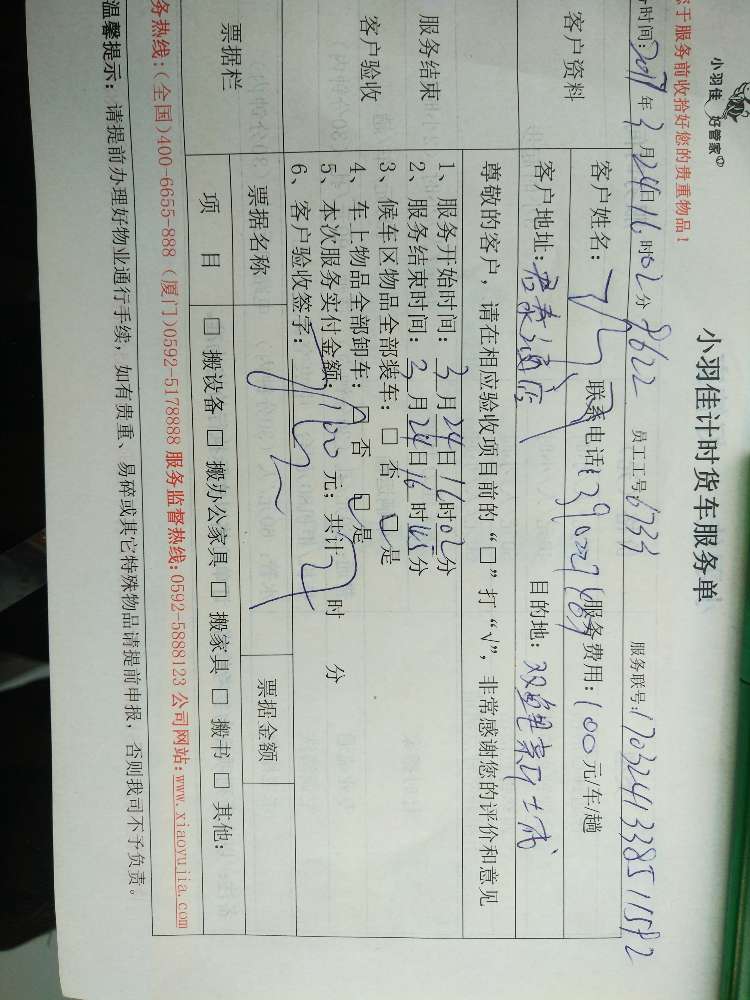 小羽佳 好管家
小羽佳计时货车服务单
于服务前收拾好您的贵重物品！
时间：2017年3月24日16时02分 8622 员工工号：6733 服务联号：1703241338511592
客户资料
客户姓名： 联系电话： 服务费用：100元/车/趟
客户地址： 目的地：
服务结束
客户验收
尊敬的客户，请在相应验收项目前的“□”打“√”，非常感谢您的评价和意见
1、服务开始时间：3月24日16时02分
2、服务结束时间：3月24日16时45分
3、候车区物品全部装车：□ 否 □ 是
4、车上物品全部卸车：□ 否 □ 是
5、本次服务实付金额：100元；共计 时 分
6、客户验收签字：
票据栏
票据名称 票据金额
项 目 □ 搬设备 □ 搬办公家具 □ 搬家具 □ 搬书 □ 其他：
务热线：(全国)400-6655-888 (厦门)0592-5178888 服务监督热线：0592-5888123 公司网站：www.xiaoyujia.com
温馨提示：请提前办理好物业通行手续，如有贵重、易碎或其它特殊物品请提前申报，否则我司不予负责。